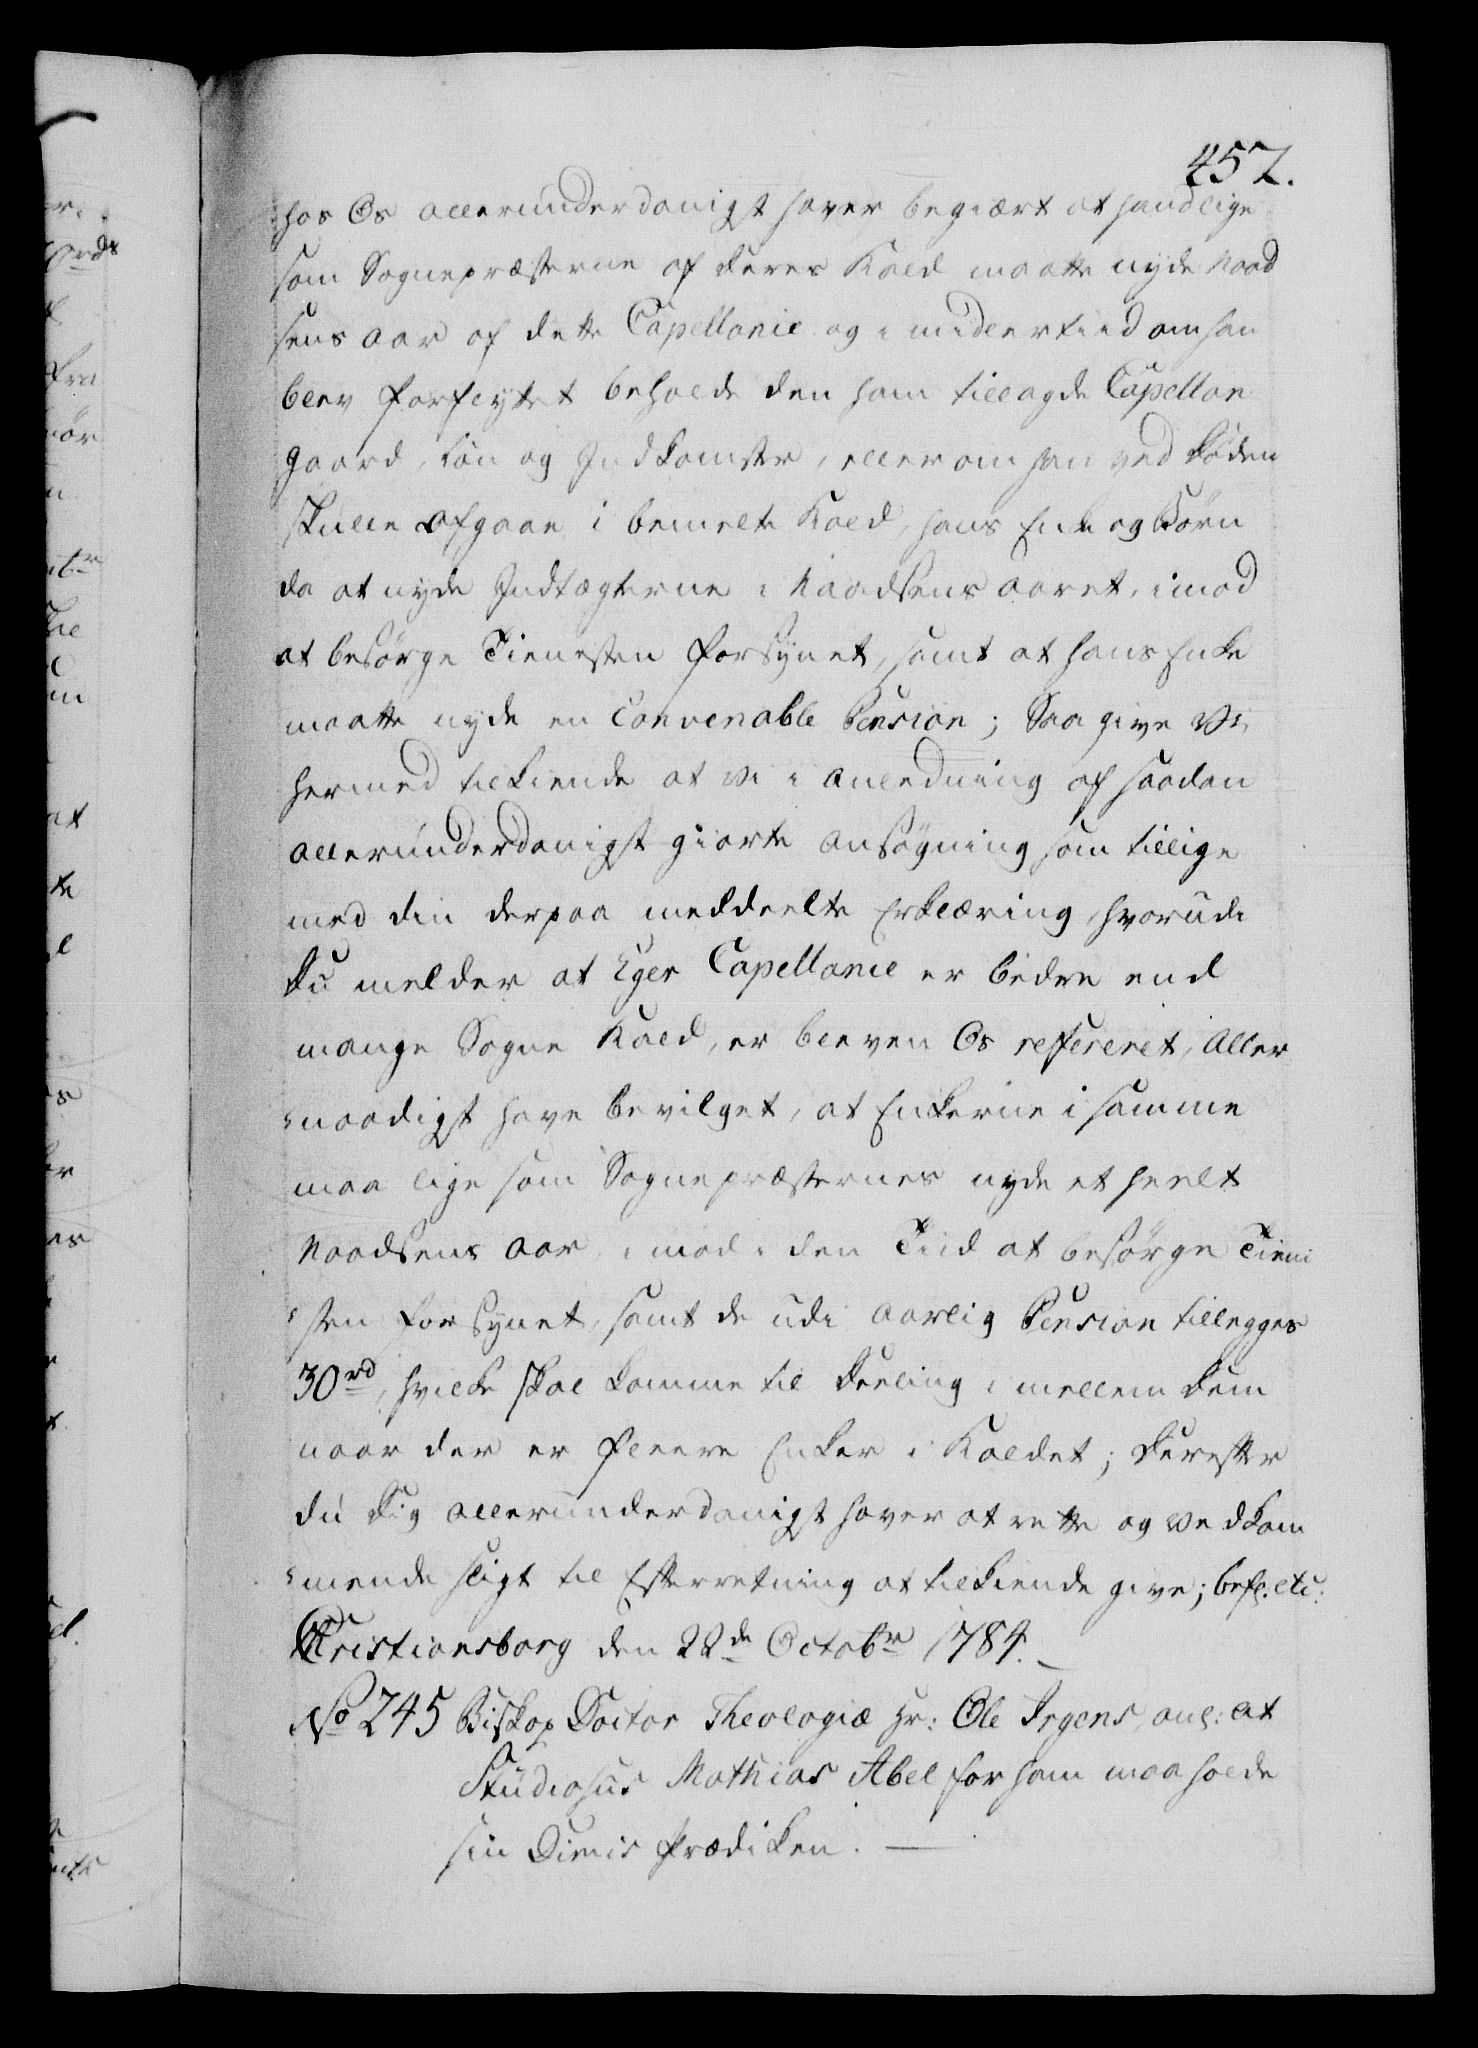 457.
hos Os allerunderdanigst haver begiært at hand lige
som Sognepræsterne af deres Kald maatte nyde Naad
sens aar af dette Capellanie og imidlertiid om han
blev forflyttet beholde den ham tillagde Capellan
gaard, Løn og Indkomster, eller om han ved Døden
skulle afgaae i bemelte Kald, hans Enke og Børn
da at nyde Indtægterne i Naadsens aaret, imod
at besørge Tienesten forsynet, samt at hans Enke
maatte nyde en Convenable Pension; Saa give Vi
hermed tilkiende at vi i anledning af saadan
allerunderdanigst giorte ansøgning som tillige
med din derpaa meddeelte Erklæring, hvorudi
Du melder at Eger Capellanie er bedre end
mange Sogne Kald, er bleven Os refereret, Aller
naadigst have bevilget, at Enkerne i samme
maa lige som Sognepræsternes nyde et heelt
Naadsens aar, imod i den Tiid at besørge Tieni
sten forsynet, samt de udi aarlig Pension tillegges
30 rd, hvilke skal komme til Deeling imellem dem
naar der er fleere Enker i Kaldet; Derefter
du Dig allerunderdanigst haver at rette og vedkom
mende sligt til Efterretning at tilkiende give; befl. etc:
Christiansborg den 22de Octobr 1784.
No 245 Biskop Doctor Theologiæ Hr: Ole Irgens, anl: at
Studiosus Mathias Abel for ham maa holde
sin Dimis Prædiken. —